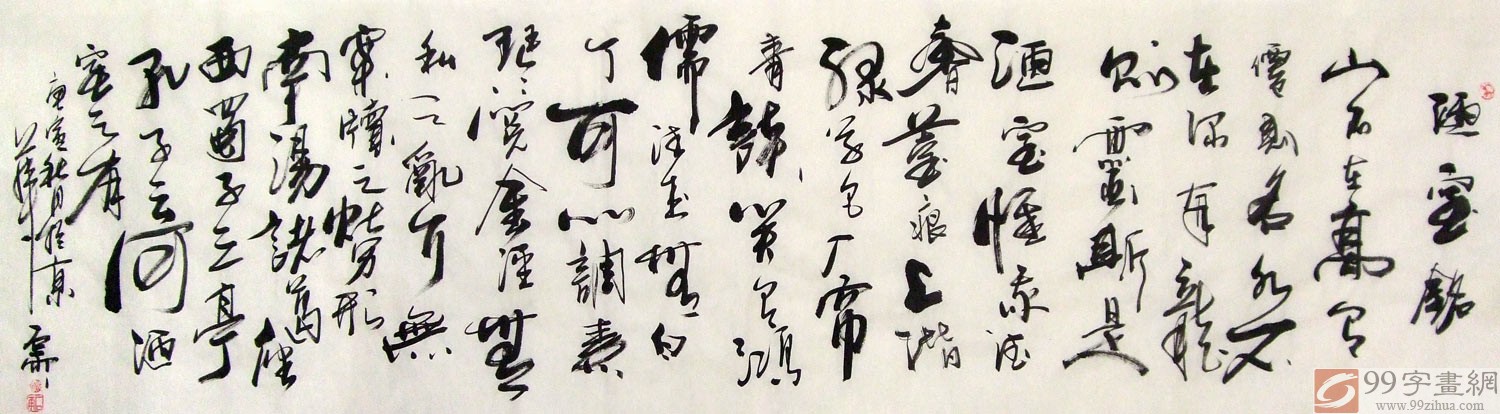 陋室銘
山不在高有
僊則名水不
在深有龍
則靈斯是
陋室惟吾德
馨苔痕上階
緑草色入簾
青談笑有鴻
儒往来無白
丁可以調素
琴閲金經無
之亂耳無
案牘之勞形
南陽諸葛廬
西蜀子云亭
孔子云何陋
室之有
庚寅秋月於京
99字畫網
www.99zihua.com